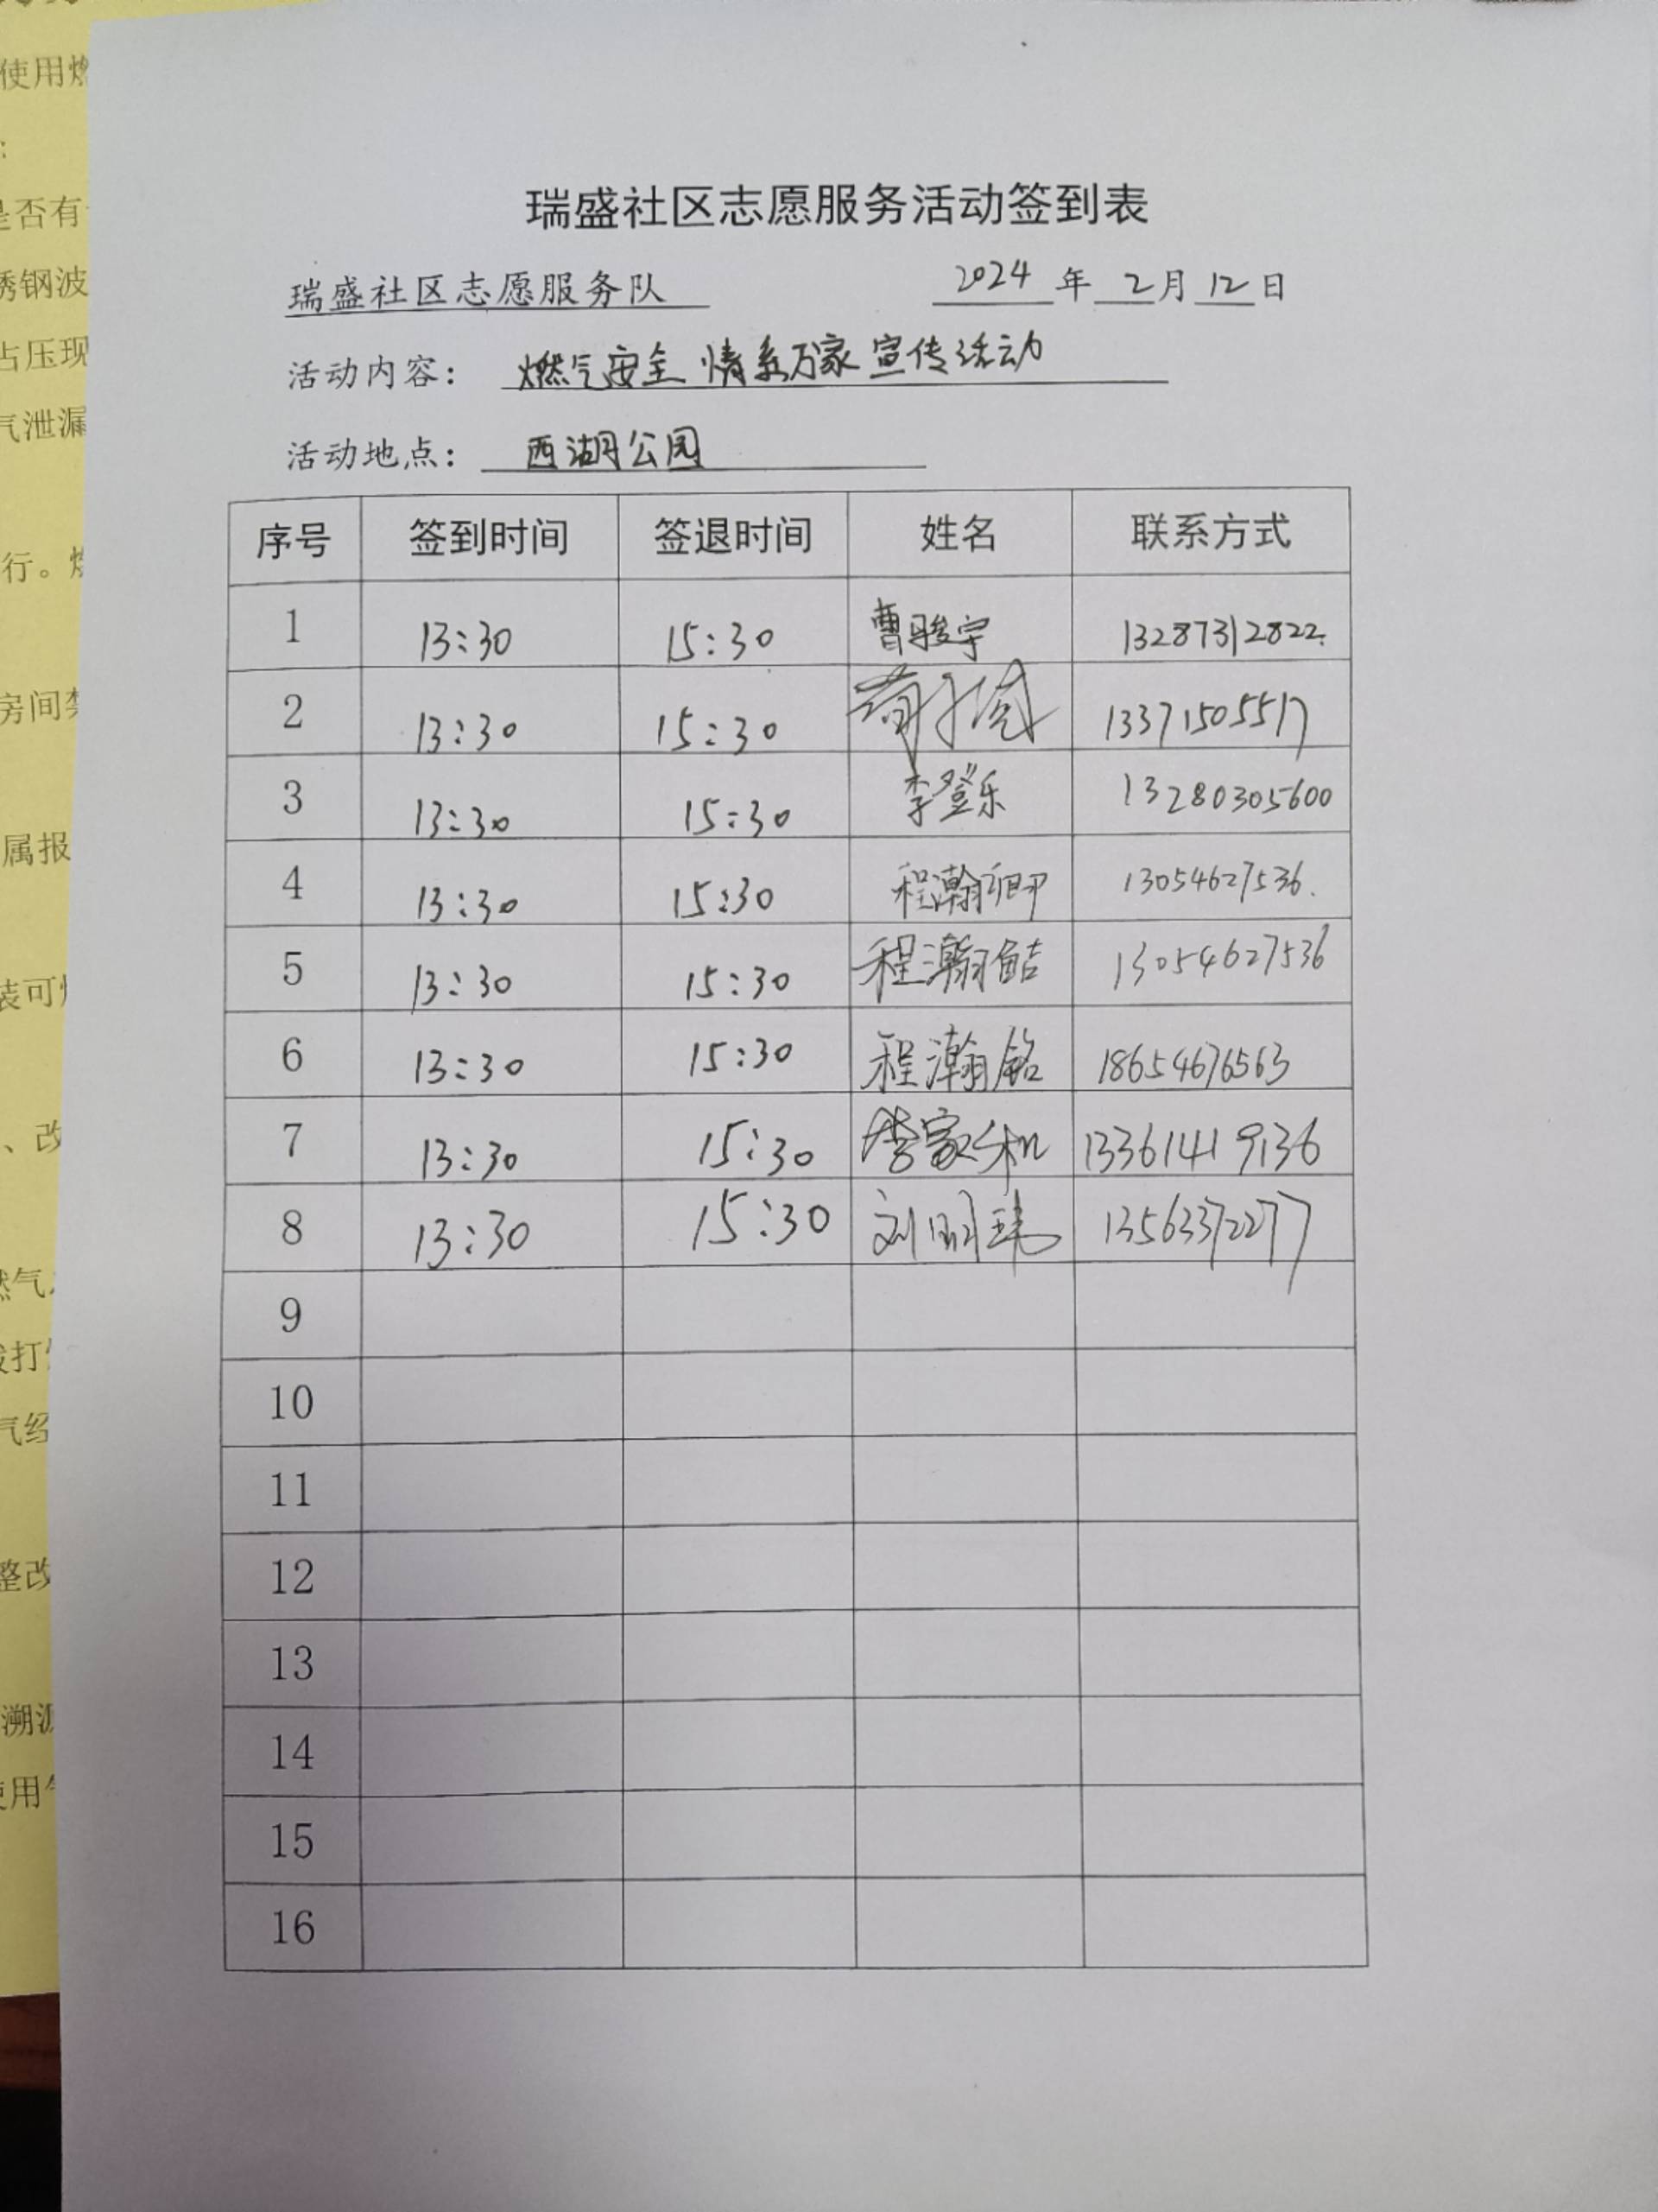 使用燃
:
是否有
锈钢波
占压现
气泄漏
行。燃
房间禁
属报
装可燃
、改
然气
拨打
气经
整改
溯源
使用
瑞盛社区志愿服务活动签到表
瑞盛社区志愿服务队 2024年2月12日
活动内容: 燃气安全 情系万家 宣传活动
活动地点: 西湖公园
序号 签到时间 签退时间 姓名 联系方式
1 13:30 15:30 曹骏宇 13287312822.
2 13:30 15:30 13371505517
3 13:30 15:30 李登乐 13280305600
4 13:30 15:30 程瀚卿 13054627536.
5 13:30 15:30 程瀚皓 13054627536
6 13:30 15:30 程瀚铭 18654676563
7 13:30 15:30 李家和 13361419136
8 13:30 15:30 刘明玮 13563372277
9
10
11
12
13
14
15
16